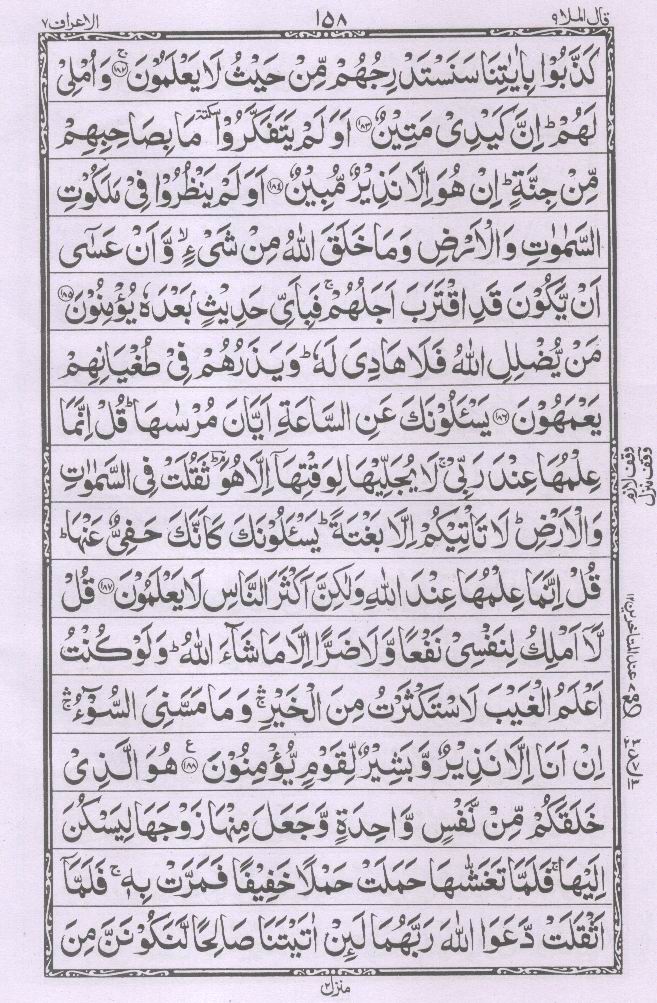 قال الملا ٩ ١٥٨ الاعراف ٧
كَذَّبُوْا بِاٰيٰتِنَا سَنَسْتَدْرِجُهُمْ مِّنْ حَيْثُ لَا يَعْلَمُوْنَ ۚ﴿۱۸۲﴾ وَاُمْلِیْ
لَهُمْ ؕ اِنَّ كَيْدِیْ مَتِيْنٌ ﴿۱۸۳﴾ اَوَلَمْ يَتَفَكَّرُوْا سكتة مَا بِصَاحِبِهِمْ
مِّنْ جِنَّةٍ ؕ اِنْ هُوَ اِلَّا نَذِيْرٌ مُّبِيْنٌ ﴿۱۸۴﴾ اَوَلَمْ يَنْظُرُوْا فِیْ مَلَكُوْتِ
السَّمٰوٰتِ وَالْاَرْضِ وَمَا خَلَقَ اللّٰهُ مِنْ شَیْءٍ ۙ وَّاَنْ عَسٰۤی
اَنْ يَّكُوْنَ قَدِ اقْتَرَبَ اَجَلُهُمْ ۚ فَبِاَیِّ حَدِيْثٍۭ بَعْدَهٗ يُؤْمِنُوْنَ ﴿۱۸۵﴾
مَنْ يُّضْلِلِ اللّٰهُ فَلَا هَادِیَ لَهٗ ؕ وَيَذَرُهُمْ فِیْ طُغْيَانِهِمْ
يَعْمَهُوْنَ ﴿۱۸۶﴾ يَسْـَٔلُوْنَكَ عَنِ السَّاعَةِ اَيَّانَ مُرْسٰىهَا ؕ قُلْ اِنَّمَا
عِلْمُهَا عِنْدَ رَبِّیْ ۚ لَا يُجَلِّيْهَا لِوَقْتِهَاۤ اِلَّا هُوَ ؔؕ ثَقُلَتْ فِی السَّمٰوٰتِ
وَالْاَرْضِ ؕ لَا تَاْتِيْكُمْ اِلَّا بَغْتَةً ؕ يَسْـَٔلُوْنَكَ كَاَنَّكَ حَفِیٌّ عَنْهَا ؕ
قُلْ اِنَّمَا عِلْمُهَا عِنْدَ اللّٰهِ وَلٰكِنَّ اَكْثَرَ النَّاسِ لَا يَعْلَمُوْنَ ﴿۱۸۷﴾ قُلْ
لَّاۤ اَمْلِكُ لِنَفْسِیْ نَفْعًا وَّلَا ضَرًّا اِلَّا مَا شَآءَ اللّٰهُ ؕ وَلَوْ كُنْتُ
اَعْلَمُ الْغَيْبَ لَاسْتَكْثَرْتُ مِنَ الْخَيْرِ ۛۚ وَمَا مَسَّنِیَ السُّوْٓءُ ۛۚ
اِنْ اَنَا اِلَّا نَذِيْرٌ وَّبَشِيْرٌ لِّقَوْمٍ يُّؤْمِنُوْنَ ﴿۱۸۸﴾ ع هُوَ الَّذِیْ
خَلَقَكُمْ مِّنْ نَّفْسٍ وَّاحِدَةٍ وَّجَعَلَ مِنْهَا زَوْجَهَا لِيَسْكُنَ
اِلَيْهَا ۚ فَلَمَّا تَغَشّٰىهَا حَمَلَتْ حَمْلًا خَفِيْفًا فَمَرَّتْ بِهٖ ۚ فَلَمَّاۤ
اَثْقَلَتْ دَّعَوَا اللّٰهَ رَبَّهُمَا لَئِنْ اٰتَيْتَنَا صَالِحًا لَّنَكُوْنَنَّ مِنَ
منزل ٢